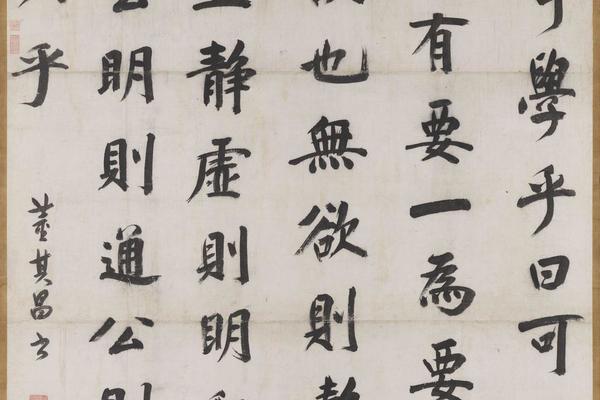 學乎曰可
有要一為要
也無欲則靜
靜虛則明
明則通公則
乎
董其昌書